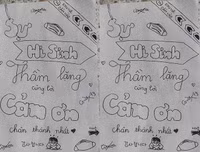 Sự
Hi Sinh
Thầm lặng
cùng lời
Cảm ơn
chân thành nhất
Sự
Hi Sinh
Thầm lặng
cùng lời
Cảm ơn
chân thành nhất